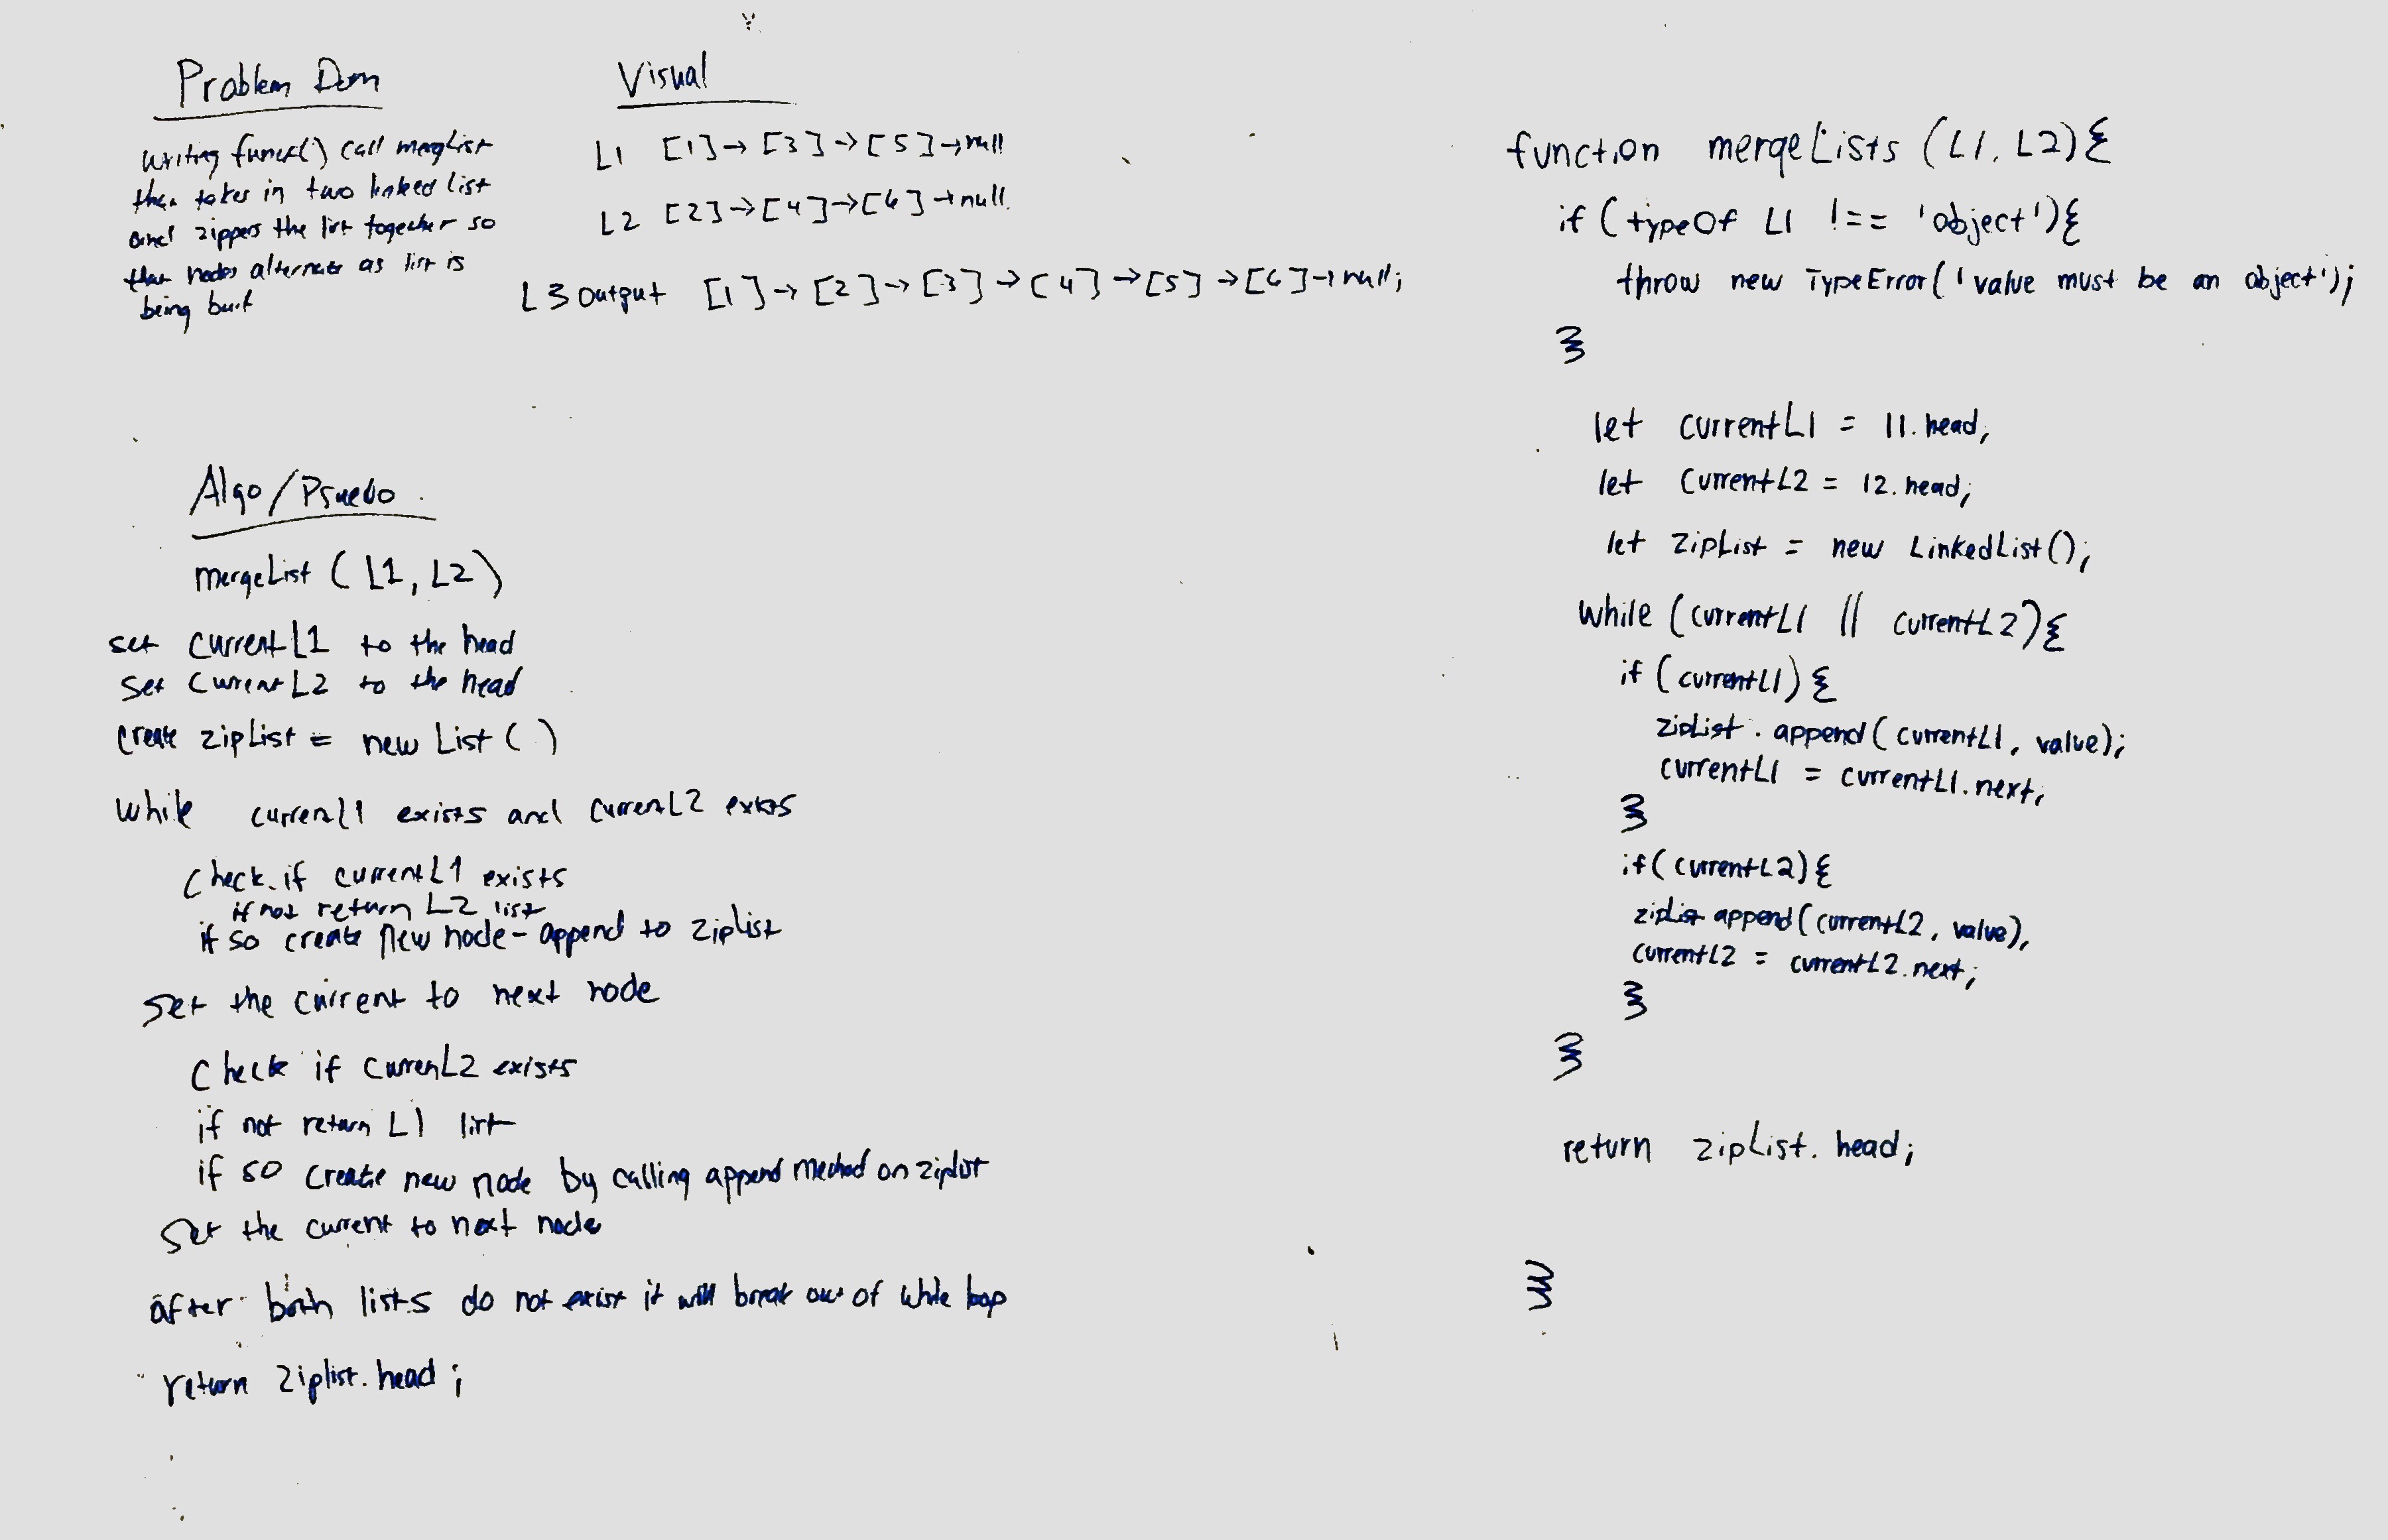 Problem Dom
Writing funct() call mergList
that takes in two linked list
and zippers the list together so
that nodes alternate as list is
being built
Visual
L1 [1]→[3]→[5]→null
L2 [2]→[4]→[6]→null.
L3 output [1]→[2]→[3]→[4]→[5]→[6]→null;
Algo/Psuedo
mergeList (L1, L2)
set currentL1 to the head
set currentL2 to the head
create zipList = new List ( )
while currenL1 exists and currenL2 exists
Check if currentL1 exists
if not return L2 list
if so create new node - append to ziplist
set the current to next node
Check if currenL2 exists
if not return L1 list
if so create new node by calling append method on ziplist
set the current to next node
after both lists do not exist it will break out of while loop
return ziplist.head;
function mergeLists (L1, L2){
if (typeOf L1 !== 'object'){
throw new TypeError('value must be an object');
}
let currentL1 = l1.head;
let currentL2 = l2.head;
let zipList = new LinkedList();
while (currentL1 || currentL2){
if (currentL1) {
zipList.append(currentL1, value);
currentL1 = currentL1.next;
}
if(currentL2){
zipList append(currentL2, value),
currentL2 = currentL2.next;
}
}
return zipList.head;
}